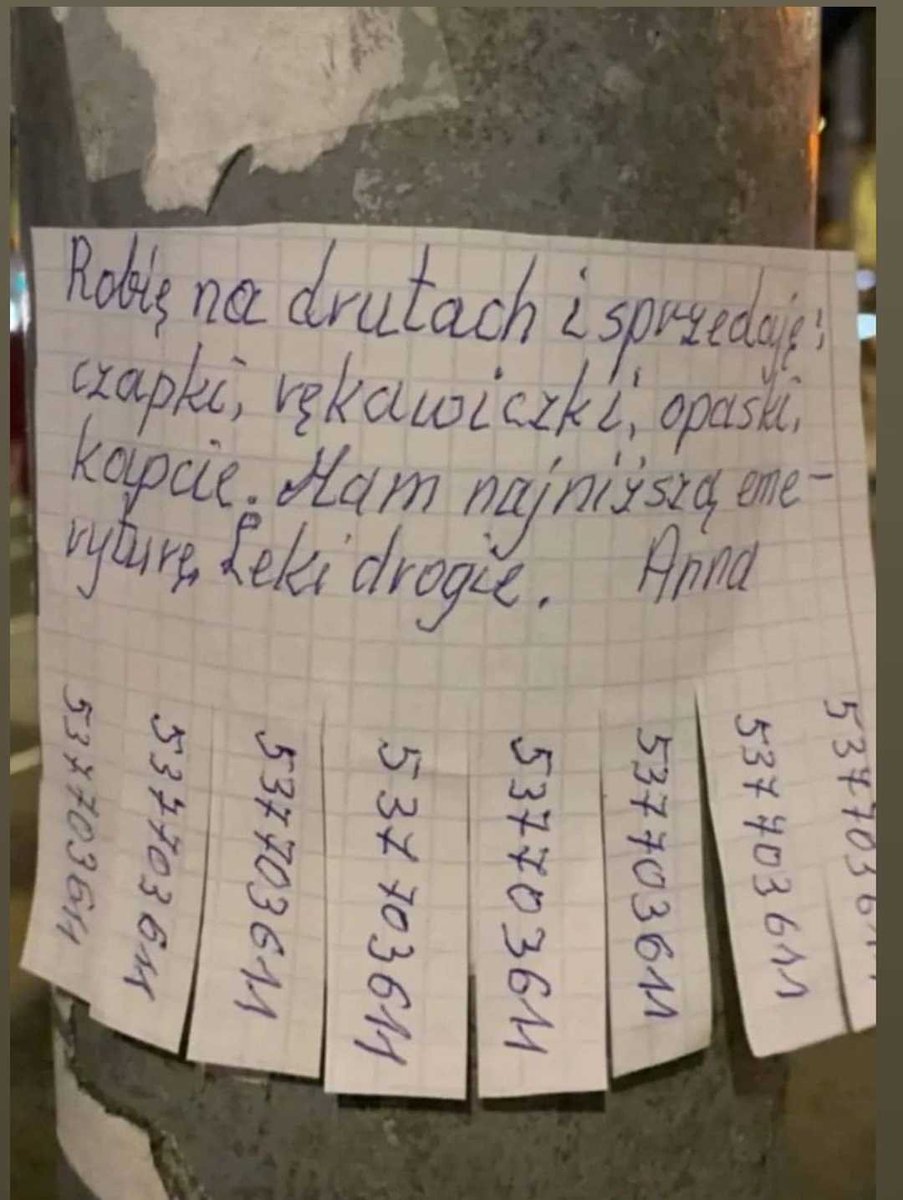 Robię na drutach i sprzedaję:
czapki, rękawiczki, opaski,
kapcie. Mam najniższą eme-
ryturę, Leki drogie. Anna
537703611
537703611
537703611
537703611
537703611
537703611
537703611
53770361